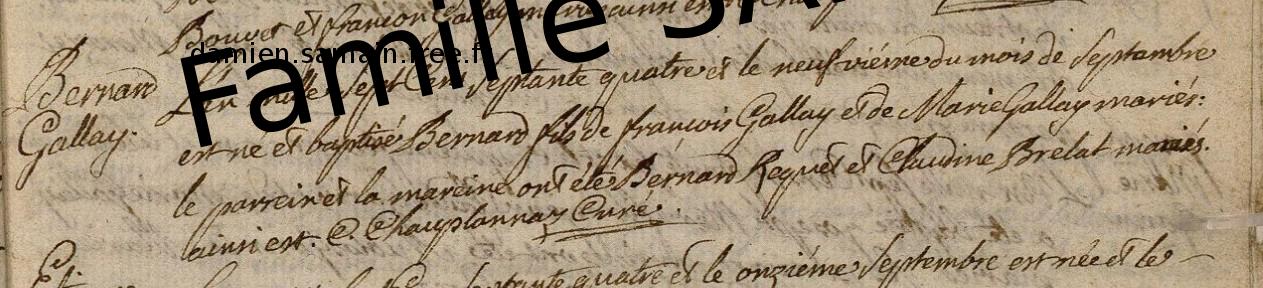 Bouvet et françon Gallay
damien.sarrazin.free.f
Famille SA
Bernard
Gallay.
L'an mille sept Cent Septante quatre et le neufviéme du mois de Septembre
est né et baptisé Bernard fils de françois Gallay et de Marie Gallay mariés:
le parrein et la mareine ont été Bernard Requet et Claudine Brelat mariés.
ainsi est. C. Chauplannay Curé.
septante quatre et le onziéme Septembre est née et le